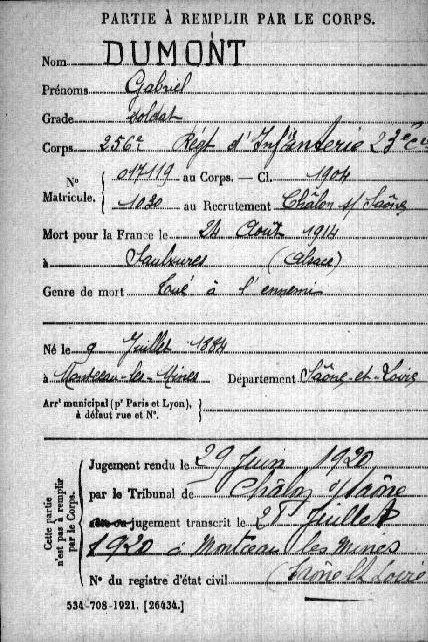 PARTIE À REMPLIR PAR LE CORPS.
Nom DUMONT
Prénoms Gabriel
Grade soldat
Corps 256e Régt d'Infanterie 23e Cie
N° Matricule. { 017119 au Corps. — Cl. 1904
1020 au Recrutement Châlon s/ Saône
Mort pour la France le 24 Août 1914
à Saulxures (Alsace)
Genre de mort Tué à l'ennemi
Né le 9 Juillet 1884
à Montceau-les-Mines Département Saône-et-Loire
Arr' municipal (p' Paris et Lyon), à défaut rue et N°. }
Cette partie n'est pas à remplir par le Corps.
Jugement rendu le 29 Juin 1920
par le Tribunal de Châlon s/Saône
acte ou jugement transcrit le Juillet
1920 à Montceau les Mines
N° du registre d'état civil (Saône et Loire
534-708-1921. [26434.]